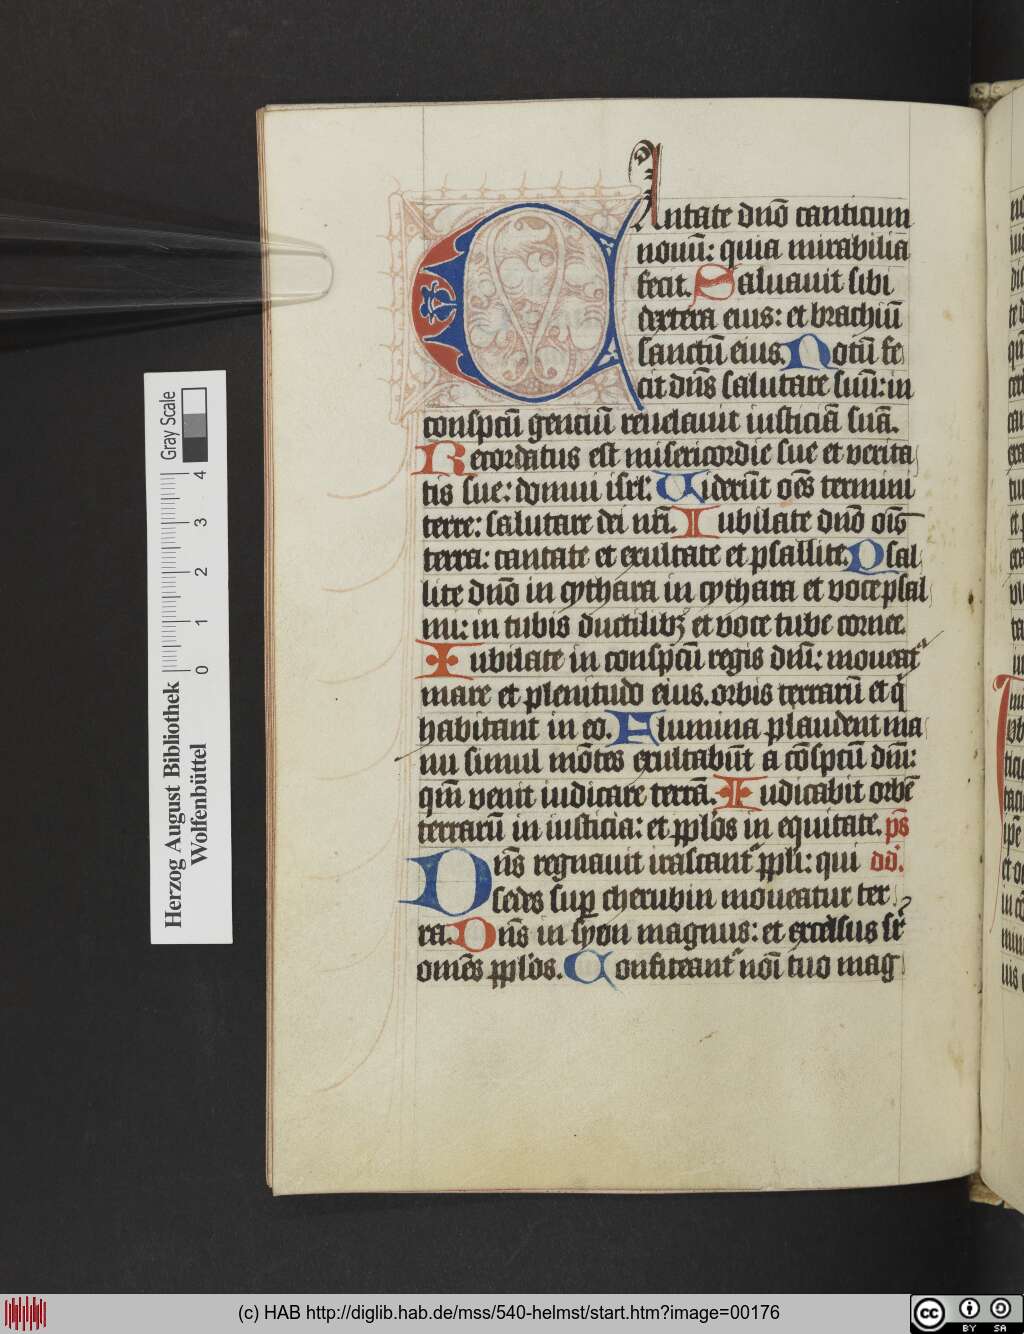 CAntate dn̄o canticum
nouū: quia mirabilia
fecit. Saluauit sibi
dextera eius: et brachiū
sanctū eius. Notū fe
cit dn̄s salutare suū: in
conspcū genciū reuelauit iusticiā suā.
Recordatus est misericordie sue et verita
tis sue: domui isrl̄. Uiderūt oēs termini
terre: salutare dei nr̄i. Iubilate dn̄o oīs
terra: cantate et exultate et psallite. Psal
lite dn̄o in cythara in cythara et voce psal
mi: in tubis ductilibꝫ et voce tube cornee.
Iubilate in conspcū regis dn̄i: moueat᷑
mare et plenitudo eius. orbis terrarū et q̇
habitant in eo. Flumina plaudent ma
nu simul mōtes exultabūt a cōspcū dn̄i:
qm̄ venit iudicare terrā. Iudicabit orbē
terrarū in iusticia: et ppl̄os in equitate. ps̄
Dn̄s regnauit irascant᷑ ppl̄i: qui dd̄.
sedes suꝑ cherubin moueatur ter
ra. Dn̄s in syon magnus: et excelsus sr̄
omēs ppl̄os. Confiteant᷑ noī tuo mag
Herzog August Bibliothek
Wolfenbüttel
0 1 2 3 4
Gray Scale
(c) HAB http://diglib.hab.de/mss/540-helmst/start.htm?image=00176
cc BY SA